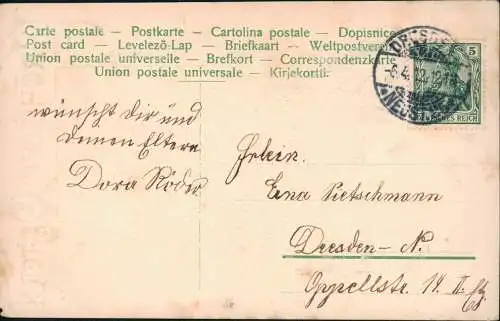 Carte postale – Postkarte – Cartolina postale – Dopisnice
Post card – Levelező-Lap – Briefkaart – Weltpostver
Union postale universelle – Brefkort – Correspondenzkarte
Union postale universale – Kirjekortii.
5
DEUTSCHES REICH
DRESDEN
NEUST
wünscht Dir und
Deinen Eltern
Dora Röder
Frlein.
Erna Pietschmann
Dresden-N.
Oppellstr. 14 II.